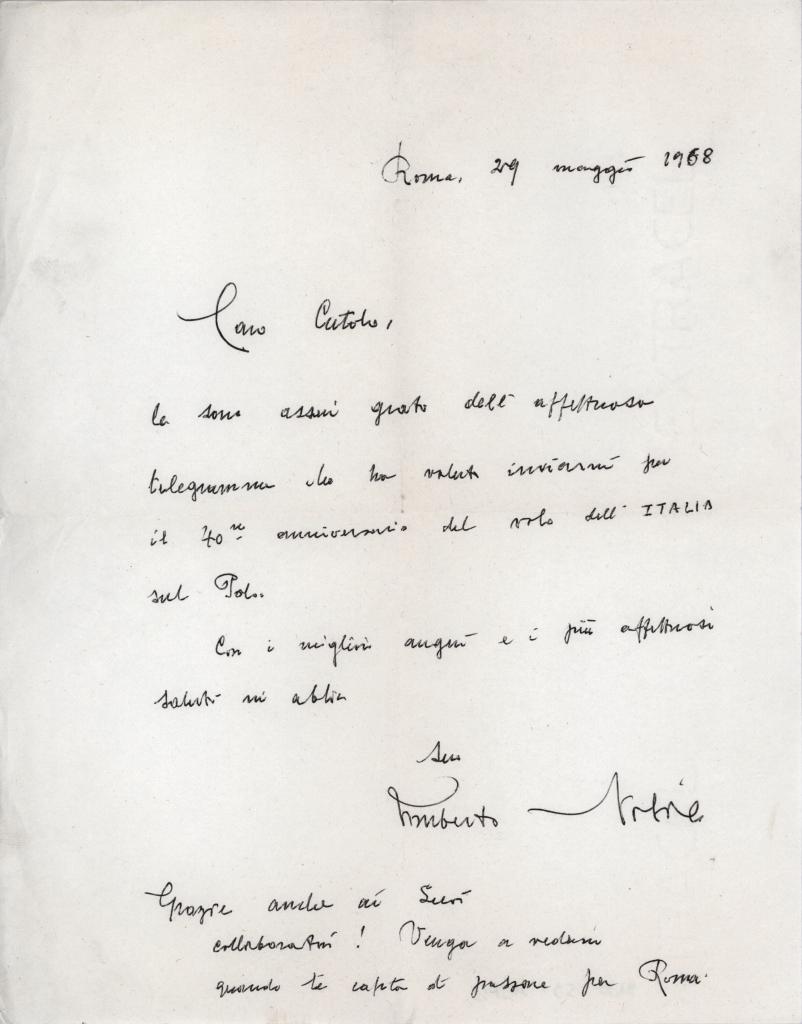 Roma, 29 maggio 1968
Caro Cutolo,
le sono assai grato dell'affettuoso
telegramma che ha voluto inviarmi per
il 40mo anniversario del volo dell'ITALIA
sul Polo.
Con i migliori auguri e i più affettuosi
saluti mi abbia
suo
Umberto Nobile
Grazie anche ai Suoi
collaboratori! Venga a vedermi
quando le capita di passare per Roma.